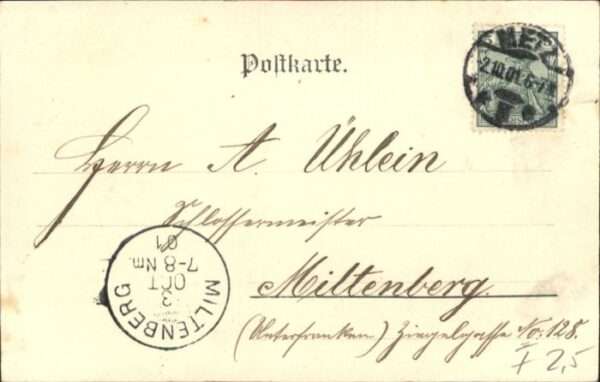 Postkarte.
METZ
2.10.01.6-7N
Herrn A. Ühlein
Schlossermeister
Miltenberg.
(Unterfranken) Ziegelgasse No: 128.
MILTENBERG
3
OCT
7-8 Nm.
01
F 2,5